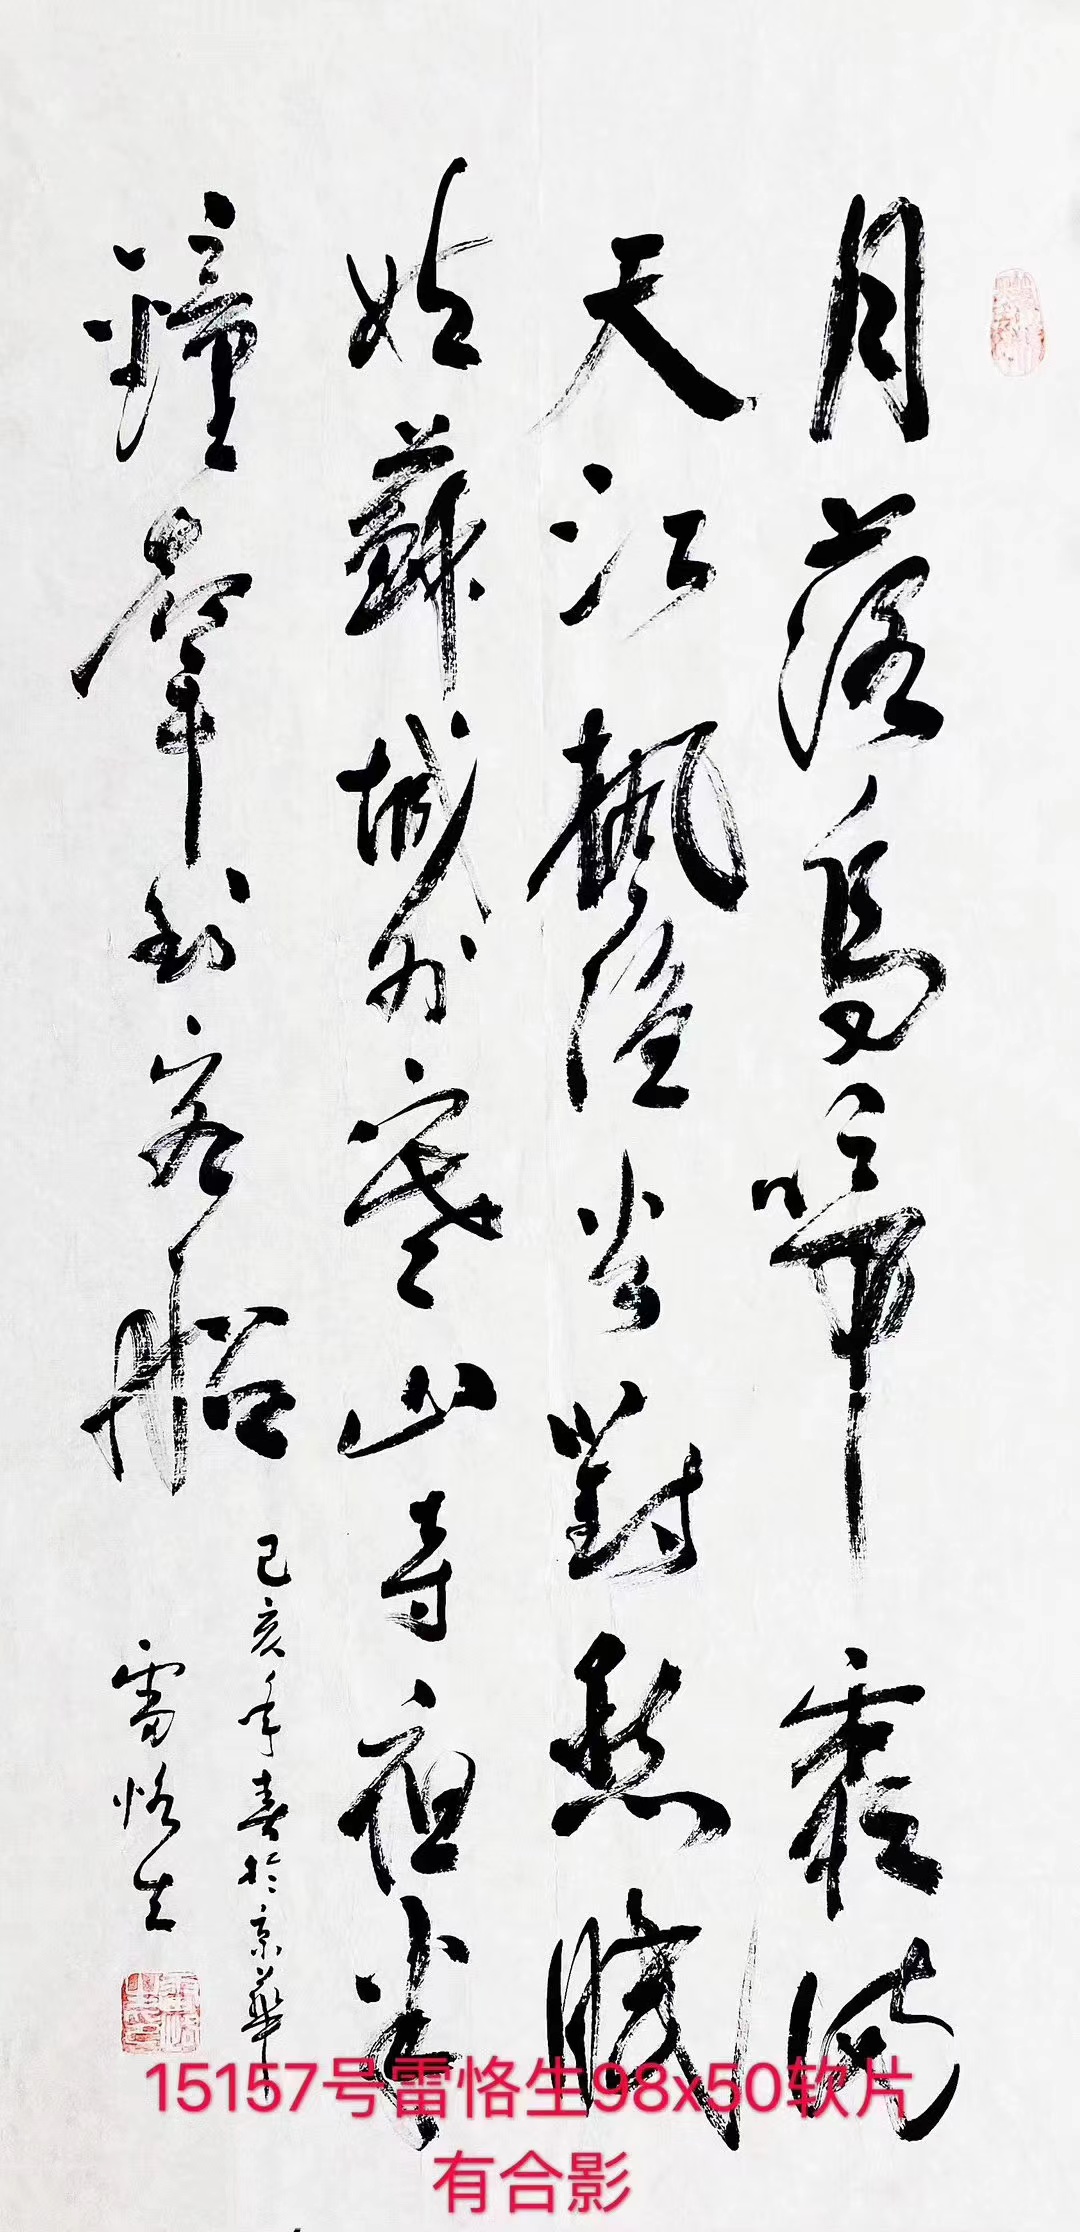 月落烏啼霜滿
天江楓漁火對愁眠
姑蘇城外寒山寺夜半
鐘聲到客船
己亥年春於京華
雷恪生
15157号雷恪生98x50软片
有合影